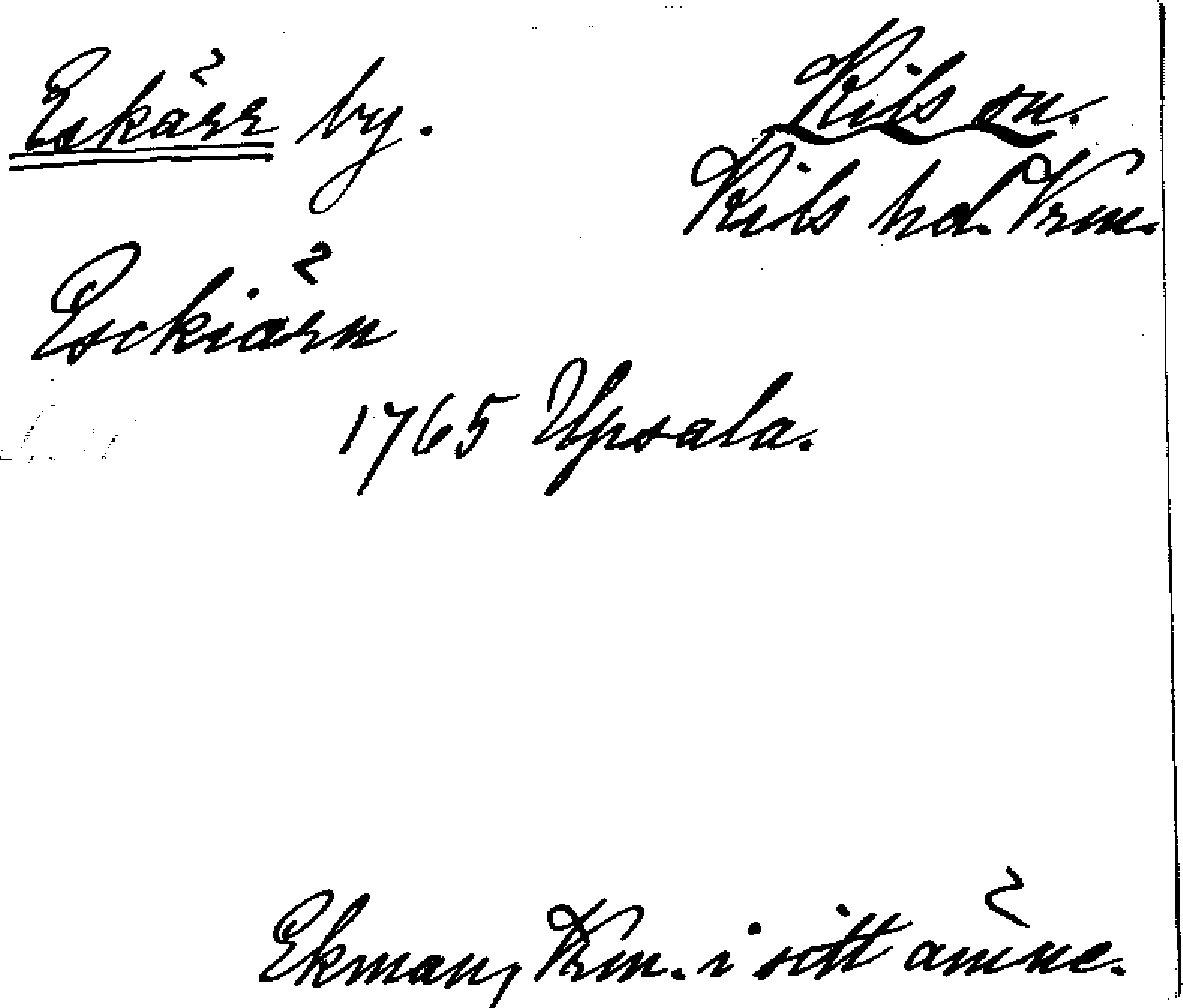 Eskärr by.
Kils sn.
Kils hd. Vrm.
Esckiärn
1765 Upsala.
Ekman, Vrm. i sitt ämne.